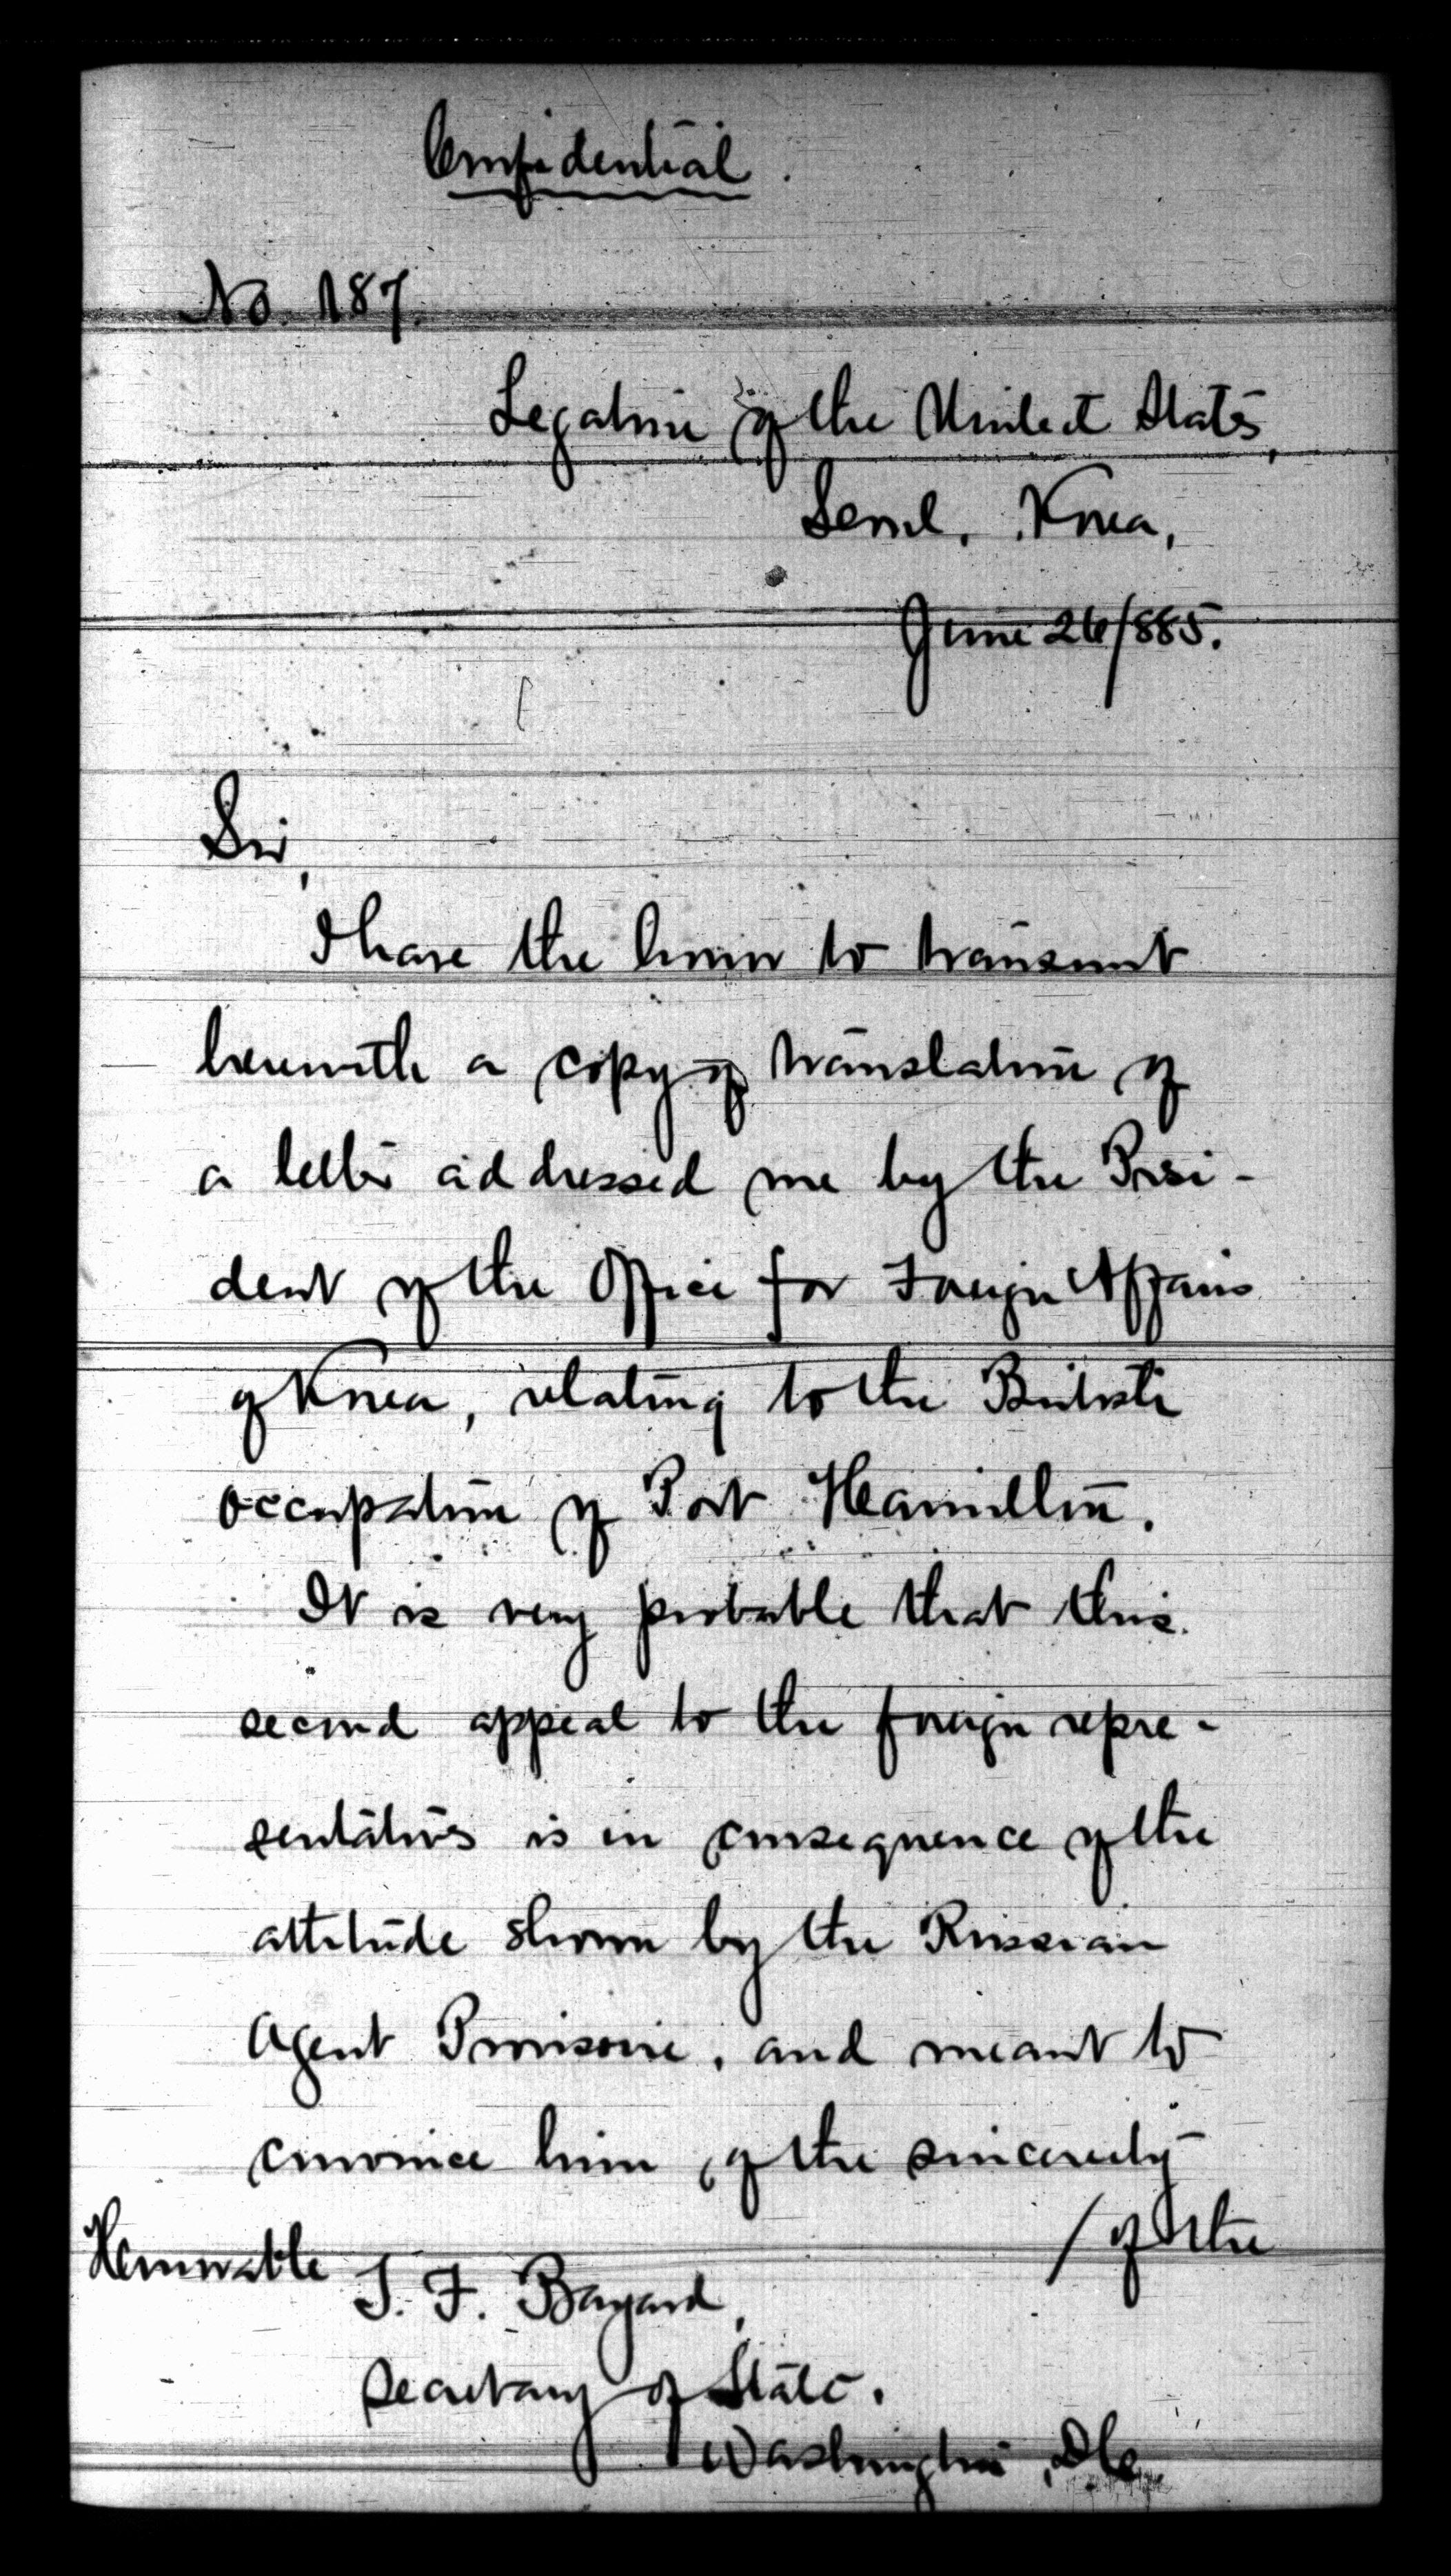 Confidential.
No. 187.
Legation of the United States,
Seoul, Korea,
June 26/885.
Sir,
I have the honor to transmit
herewith a copy of translation of
a letter addressed me by the Presi-
dent of the Office for Foreign Affairs
of Korea, relating to the British
occupation of Port Hamilton.
It is very probable that this
second appeal to the foreign repre-
sentatives is in consequence of the
attitude shown by the Russian
Agent Provisoire, and meant to
convince him of the sincerity
/ of the
Honorable
T. F. Bayard,
Secretary of State.
Washington, D.C.